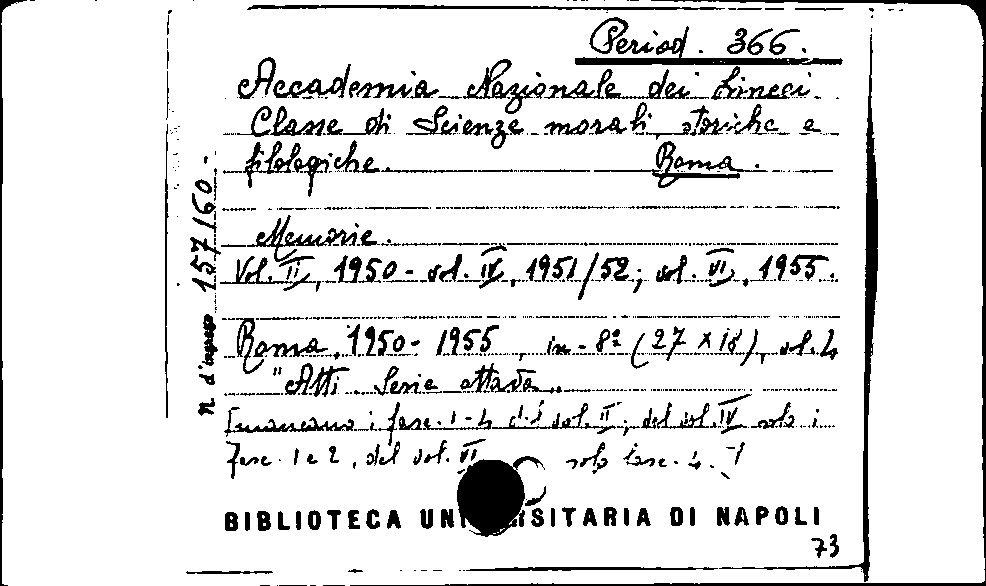 Period. 366.
Accademia Nazionale dei Lincei.
Classe di Scienze morali, storiche e
filologiche. Roma.
Memorie.
Vol. II, 1950 - vol. IV, 1951/52; vol. VI, 1955.
Roma, 1950-1955, in-8º (27 x 18), vol. 4
"Atti. Serie ottava"
[mancano i fasc. 1-4 del vol. II; del vol. IV solo i
fasc. 1 e 2, del vol. VI solo fasc. 4.]
n. d'ingresso 157160.
BIBLIOTECA UNIVERSITARIA DI NAPOLI
73